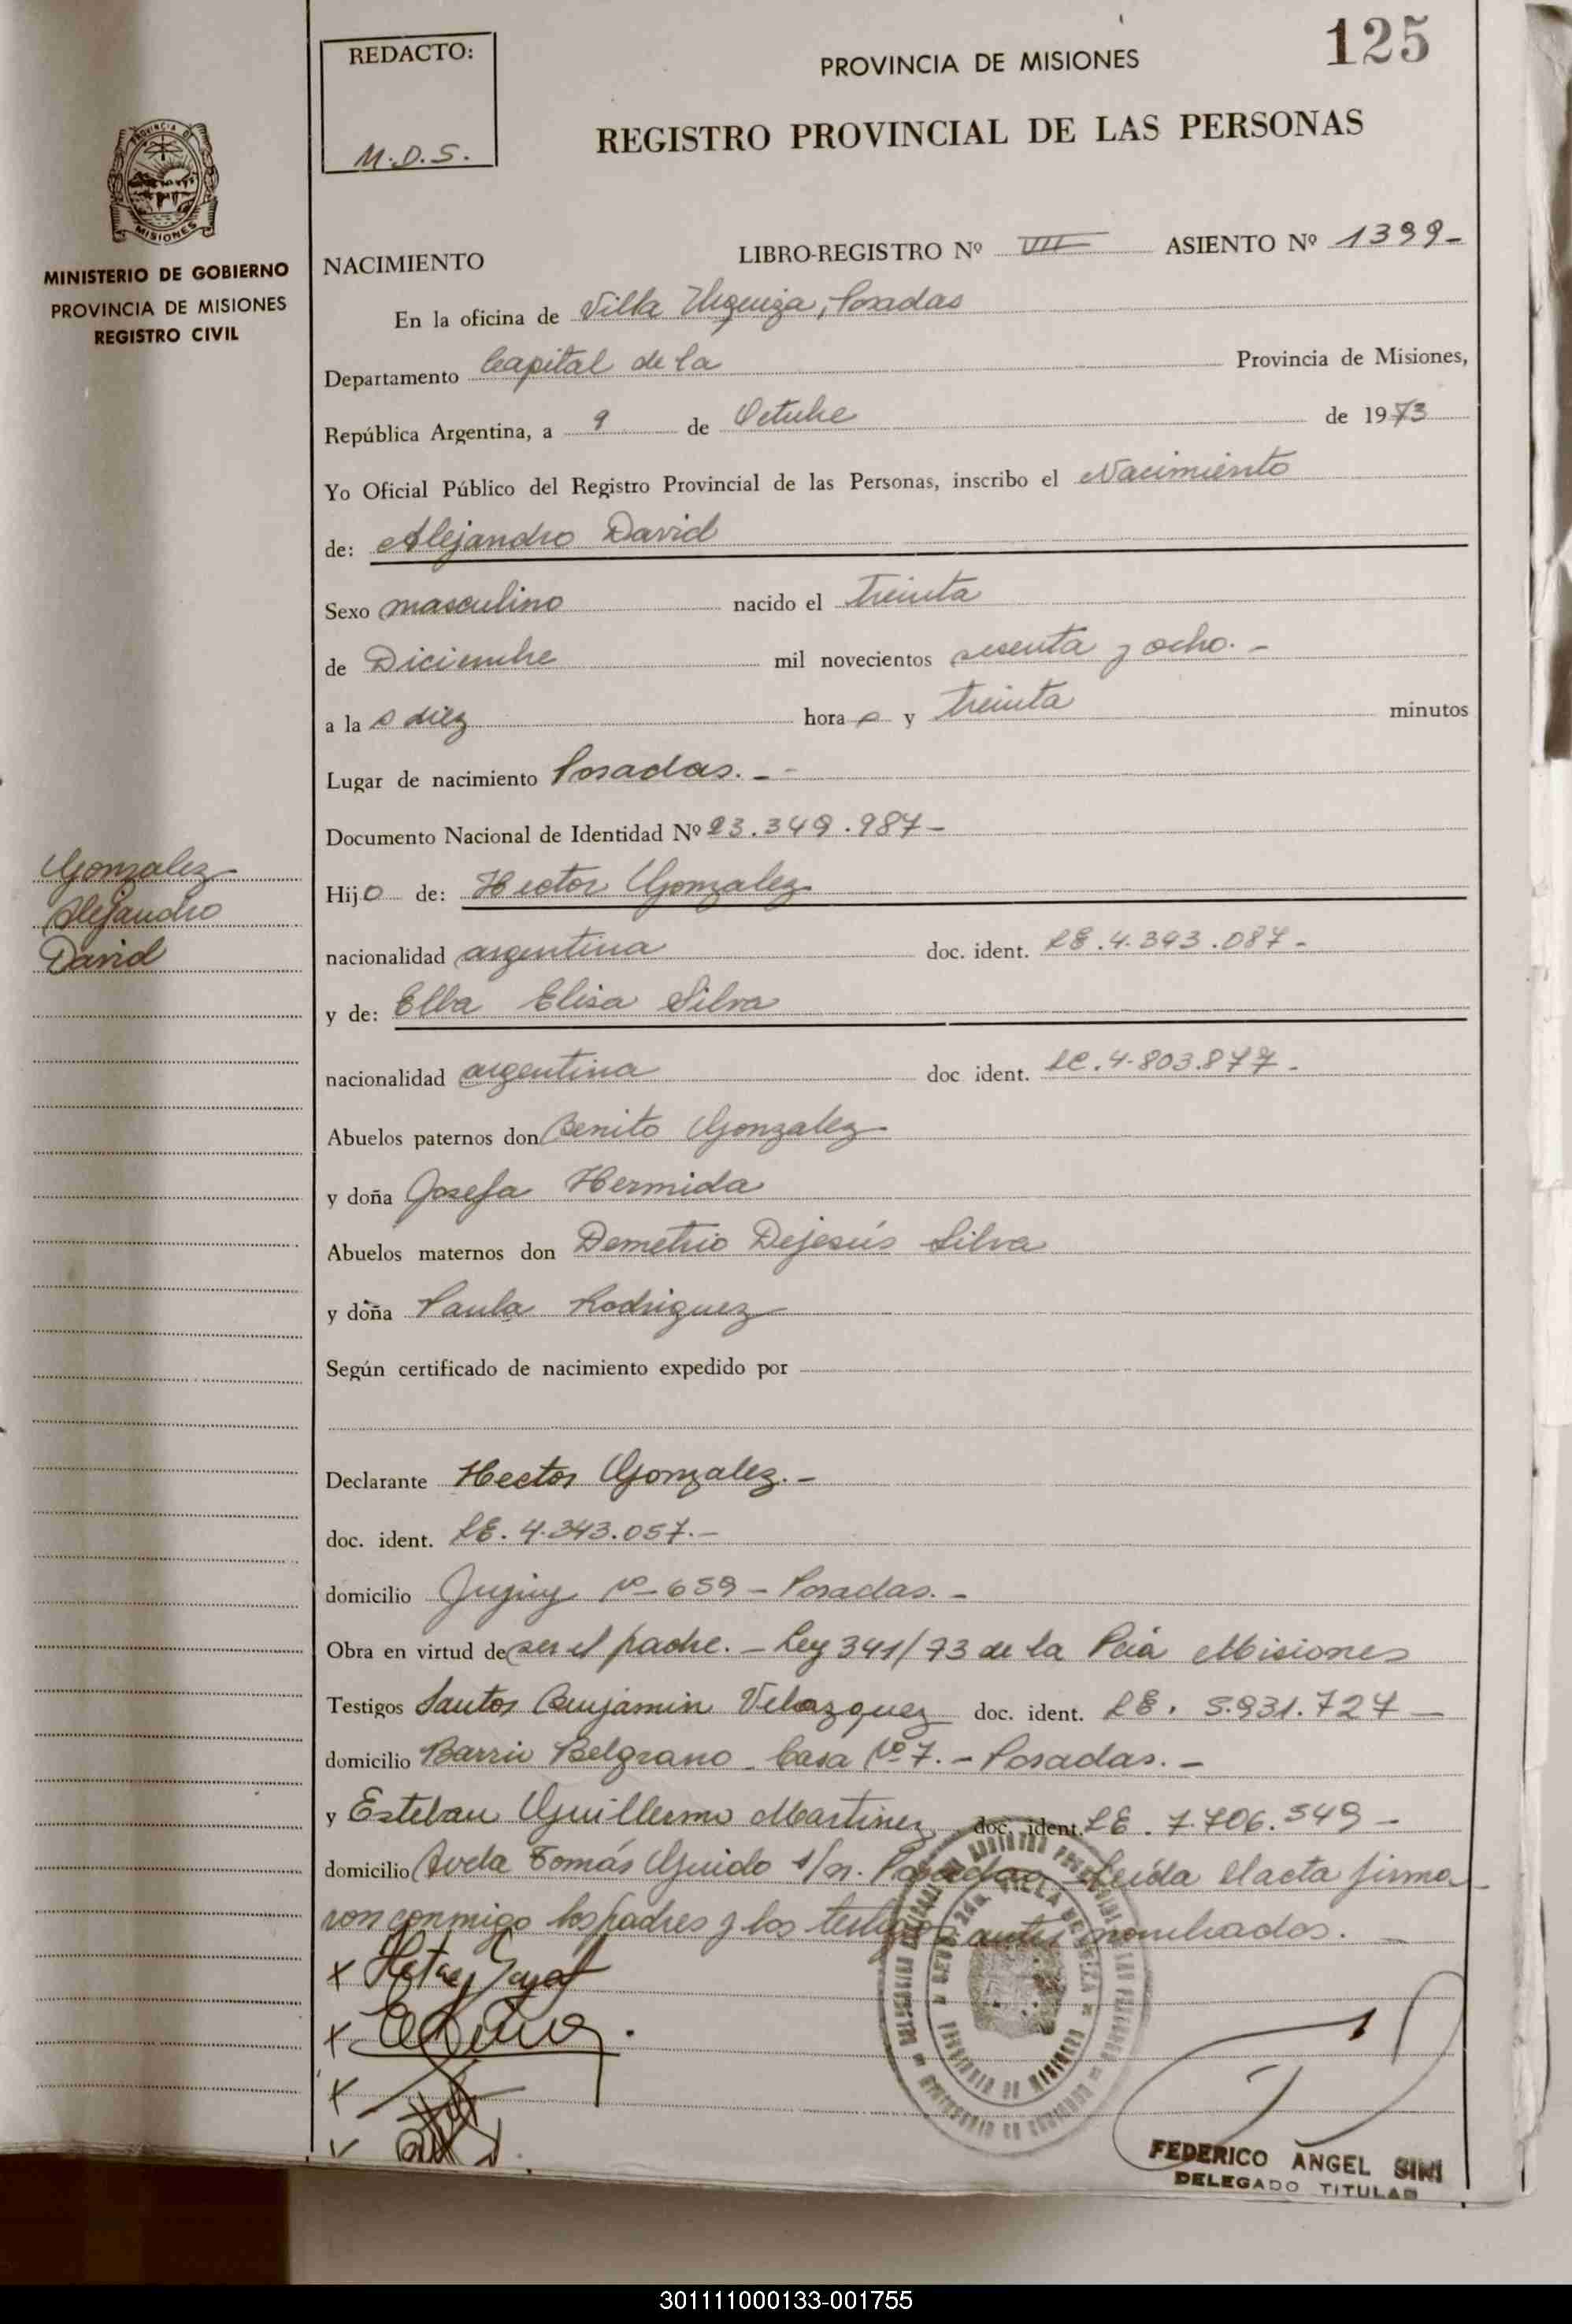 125
REDACTO:
M.D.S.
PROVINCIA DE MISIONES
REGISTRO PROVINCIAL DE LAS PERSONAS
PROVINCIA DE
MISIONES
MINISTERIO DE GOBIERNO
PROVINCIA DE MISIONES
REGISTRO CIVIL
NACIMIENTO LIBRO-REGISTRO Nº VIII ASIENTO Nº 1399-
En la oficina de Villa Urquiza, Posadas
Departamento Capital de la Provincia de Misiones,
República Argentina, a 9 de Octubre de 1973
Yo Oficial Público del Registro Provincial de las Personas, inscribo el Nacimiento
de: Alejandro David
Sexo masculino nacido el treinta
de Diciembre mil novecientos sesenta y ocho. -
a la s diez hora s y treinta minutos
Lugar de nacimiento Posadas. - -
Documento Nacional de Identidad Nº 23.349.987-
Gonzalez
Alejandro
David
Hijo de: Hector Gonzalez
nacionalidad argentina doc. ident. LE.4.343.087-
y de: Elba Elisa Silva
nacionalidad argentina doc ident. LC.4.803.877-
Abuelos paternos don Benito Gonzalez
y doña Josefa Hermida
Abuelos maternos don Demetrio Dejesús Silva
y doña Paula Rodriguez
Según certificado de nacimiento expedido por
Declarante Hector Gonzalez. -
doc. ident. LE. 4.343.057.-
domicilio Jujuy Nº 659 - Posadas. -
Obra en virtud de ser el padre. - Ley 341/73 de la Pcia Misiones
Testigos Santos Benjamin Velazquez doc. ident. LE. 5.931.727 -
domicilio Barrio Belgrano Casa Nº 7. - Posadas. -
y Esteban Guillermo Martinez doc. ident. LE. 7.706.549 -
domicilio Avda Tomás Guido s/n. Posadas - Leída el acta firma
ron conmigo los padres y los testigos antes nombrados. -
FEDERICO ANGEL SINI
DELEGADO TITULAR
301111000133-001755